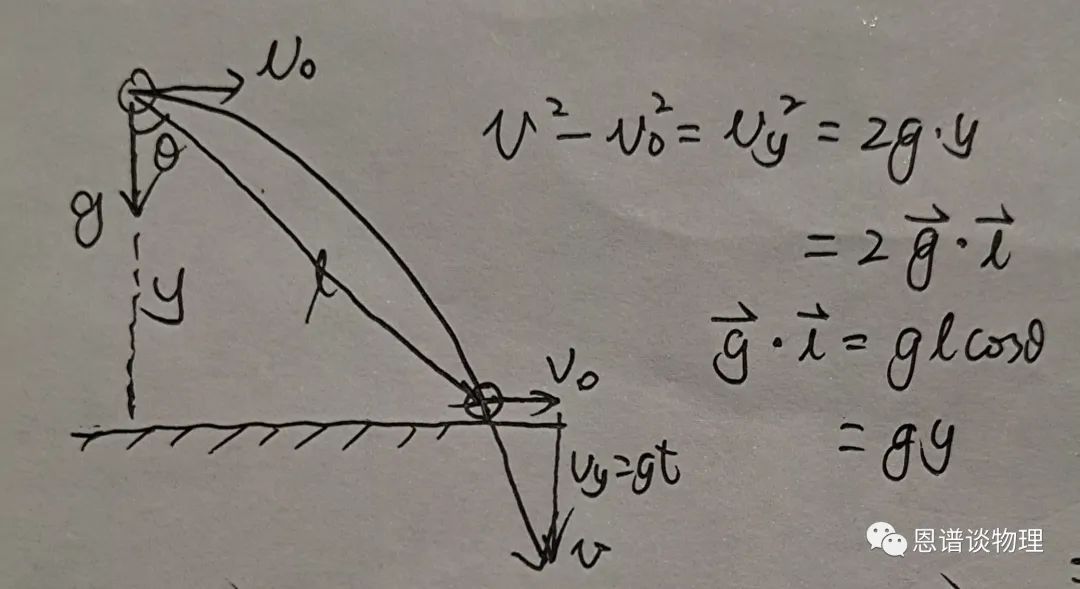 v₀
θ
g
y
l
v₀
v_y=gt
v
v²-v₀²=v_y²=2g·y
=2g⃗·l⃗
g⃗·l⃗=glcosθ
=gy
恩谱谈物理